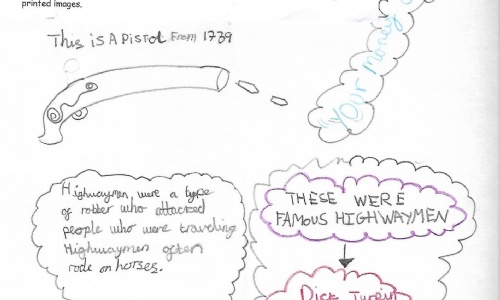 printed images.
This is A Pistol From 1739
Your money
Highwaymen were a type
of robber who attacked
people who were traveling
Highwaymen often
rode on horses.
THESE WERE
FAMOUS HIGHWAYMEN
Dick Turpin